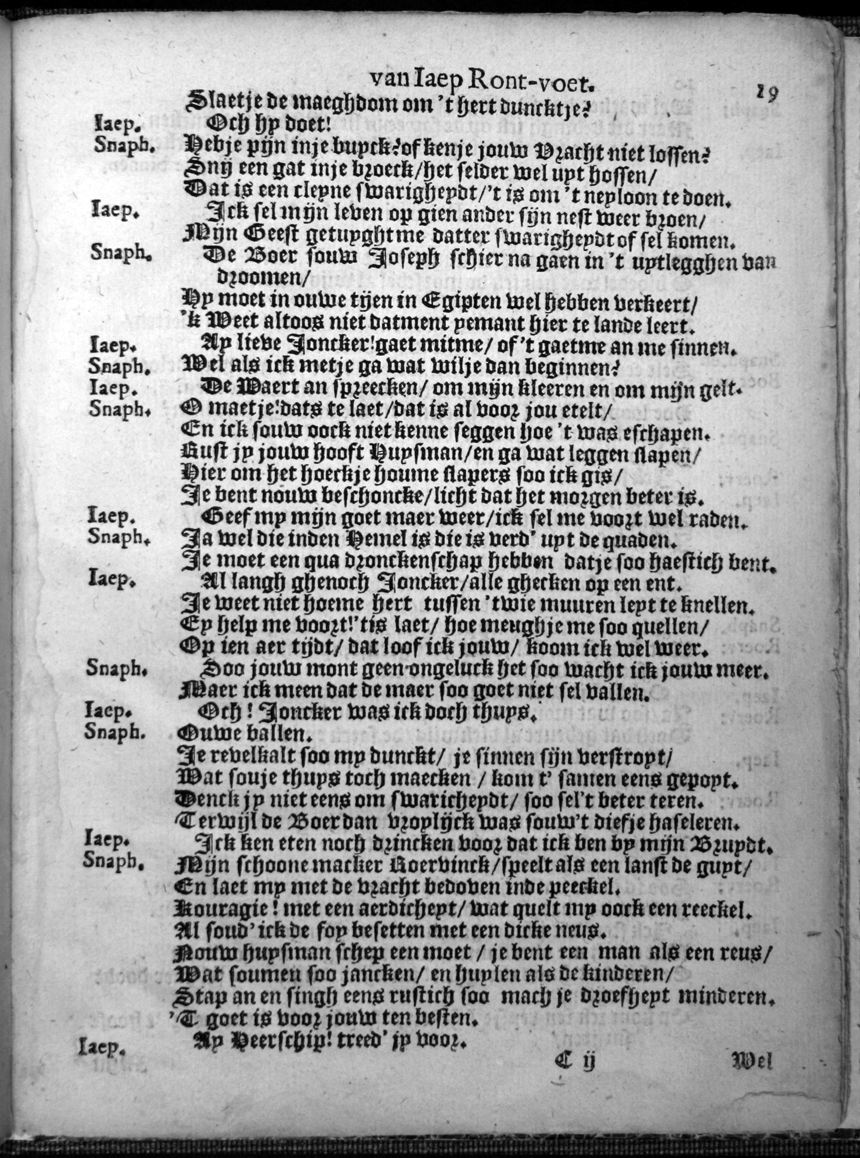 van Iaep Ront-voet. 19
Slaetje de maeghdom om 't hert duncktje?
Iaep. Och hy doet!
Snaph. Hebje pijn inje buyck? of kenje jouw Vracht niet lossen?
Snij een gat inje broeck/het selder wel uyt hossen/
Dat is een cleyne swarigheydt/'t is om 't neyloon te doen.
Iaep. Ick sel mijn leven op gien ander sijn nest weer broen/
Mijn Geest getuyght me datter swarigheydt of sel komen.
Snaph. De Boer souw Joseph schier na gaen in 't uytlegghen van
droomen/
Hy moet in ouwe tijen in Egipten wel hebben verkeert/
'k Weet altoos niet datment yemant hier te lande leert.
Iaep. Ay lieve Joncker! gaet mit me/ of 't gaet me an me sinnen.
Snaph. Wel als ick metje ga wat wilje dan beginnen?
Iaep. De Waert an spreecken/ om mijn kleeren en om mijn gelt.
Snaph. O maetje! dats te laet/dat is al voor jou etelt/
En ick souw oock niet kenne seggen hoe 't was eschapen.
Rust jy jouw hooft Huysman/en ga wat leggen slapen/
Hier om het hoeckje houme slapers soo ick gis/
Je bent nouw beschoncke/licht dat het morgen beter is.
Iaep. Geef my mijn goet maer weer/ick sel me voort wel raden.
Snaph. Ja wel die inden Hemel is die is verd' uyt de quaden.
Je moet een qua dronckenschap hebben datje soo haestich bent.
Iaep. Al langh ghenoch Joncker/alle ghecken op een ent.
Je weet niet hoe me hert tussen 'twie muuren leyt te knellen.
Ey help me voort! 'tis laet/ hoe meughje me soo quellen/
Op ien aer tijdt/ dat loof ick jouw/ koom ick wel weer.
Snaph. Soo jouw mont geen-ongeluck het soo wacht ick jouw meer.
Maer ick meen dat de maer soo goet niet sel vallen.
Iaep. Och! Joncker was ick doch thuys.
Snaph. Ouwe ballen.
Je revelkalt soo my dunckt/ je sinnen sijn verstropt/
Wat souje thuys toch maecken / kom t' samen eens gepoyt.
Denck jy niet eens om swaricheydt/ soo sel't beter teren.
Terwijl de Boer dan vrolijck was souw't diefje haseleren.
Iaep. Ick ken eten noch drincken voor dat ick ben by mijn Bruydt.
Snaph. Mijn schoone macker Roervinck/speelt als een lanst de guyt/
En laet my met de vracht bedoven inde peeckel.
Kouragie! met een aerdicheyt/ wat quelt my oock een reeckel.
Al soud' ick de foy besetten met een dicke neus.
Nouw huysman schep een moet / je bent een man als een reus/
Wat soumen soo jancken/ en huylen als de kinderen/
Stap an en singh eens rustich soo mach je droefheyt minderen.
'T goet is voor jouw ten besten.
Iaep. Ay Heerschip! treed' jy voor.
C ij Wel